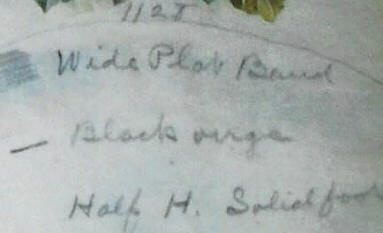 112T
Wide Plat Band
Black verge
Half H. Solid foot